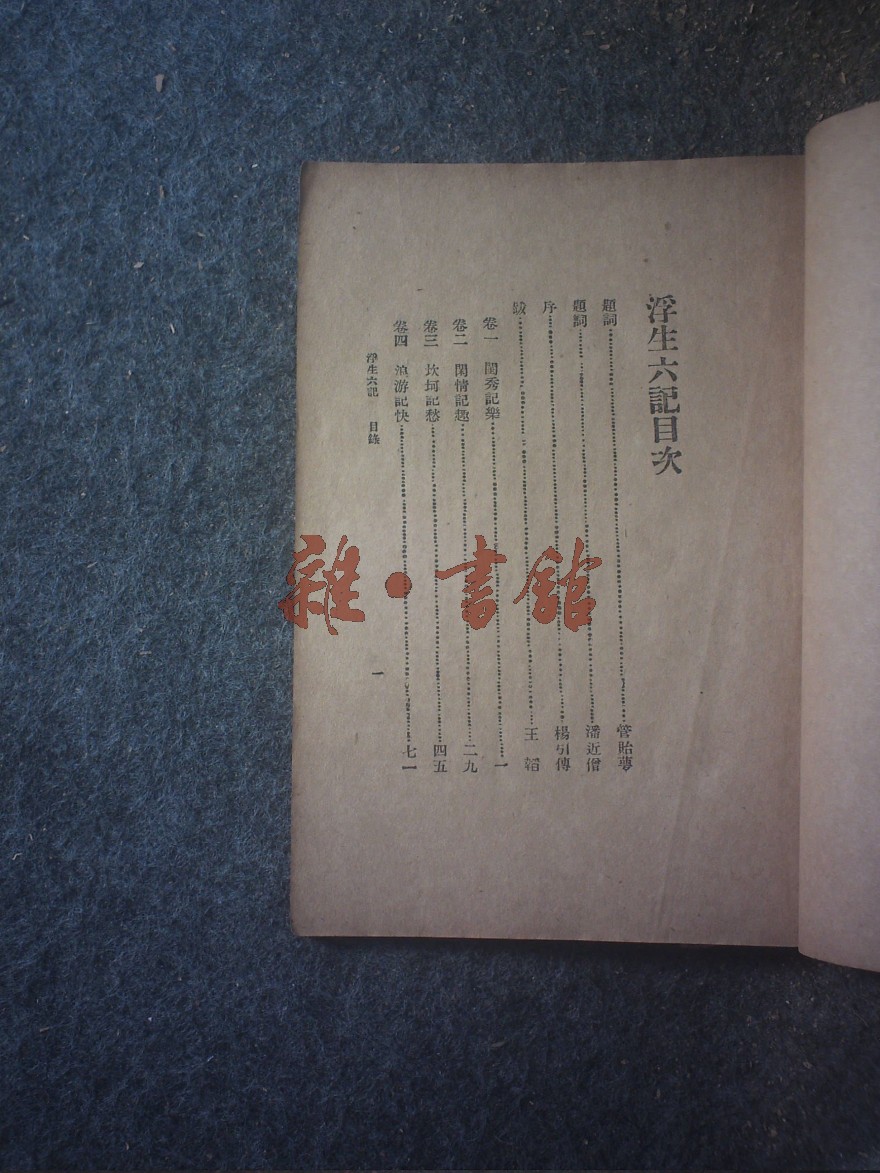 浮生六記目次
題詞……管貽葄
題詞……潘近僧
序……楊引傳
跋……王韜
卷一 閨秀記樂……一
卷二 閑情記趣……二九
卷三 坎坷記愁……四五
卷四 浪游記快……七一
浮生六記 目錄 一
雜·書館